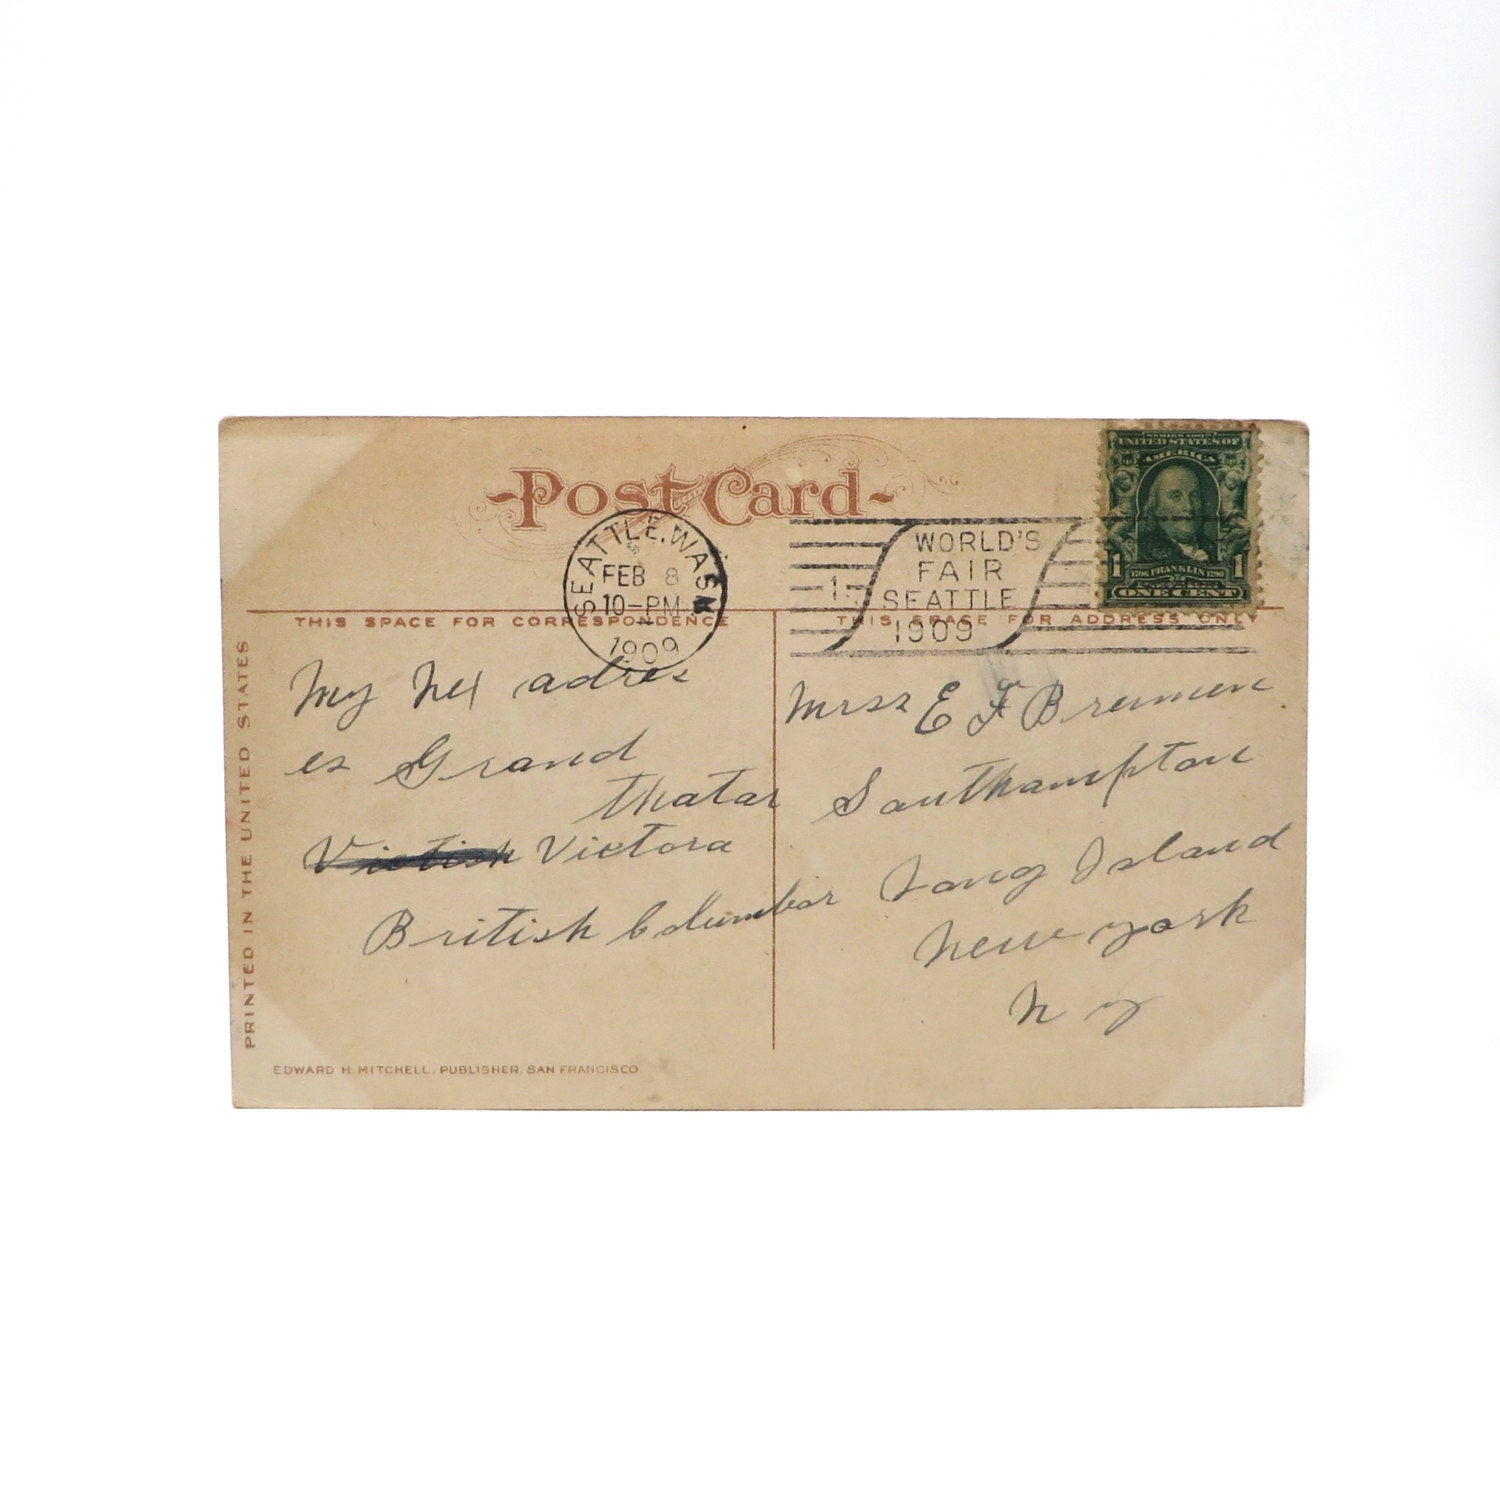 Post Card
SEATTLE, WASH
FEB 8
10-PM
1909
WORLD'S
FAIR
SEATTLE
1909
1
SERIES 1902
UNITED STATES OF
AMERICA
1 1
1706 FRANKLIN 1790
ONE CENT
THIS SPACE FOR CORRESPONDENCE
THIS SPACE FOR ADDRESS ONLY
PRINTED IN THE UNITED STATES
My Nex adres
es Grand
thatar
Victora
British Columbar
Mrss E F Bremen
Southampton
Long Island
New york
N y
EDWARD H. MITCHELL, PUBLISHER, SAN FRANCISCO.